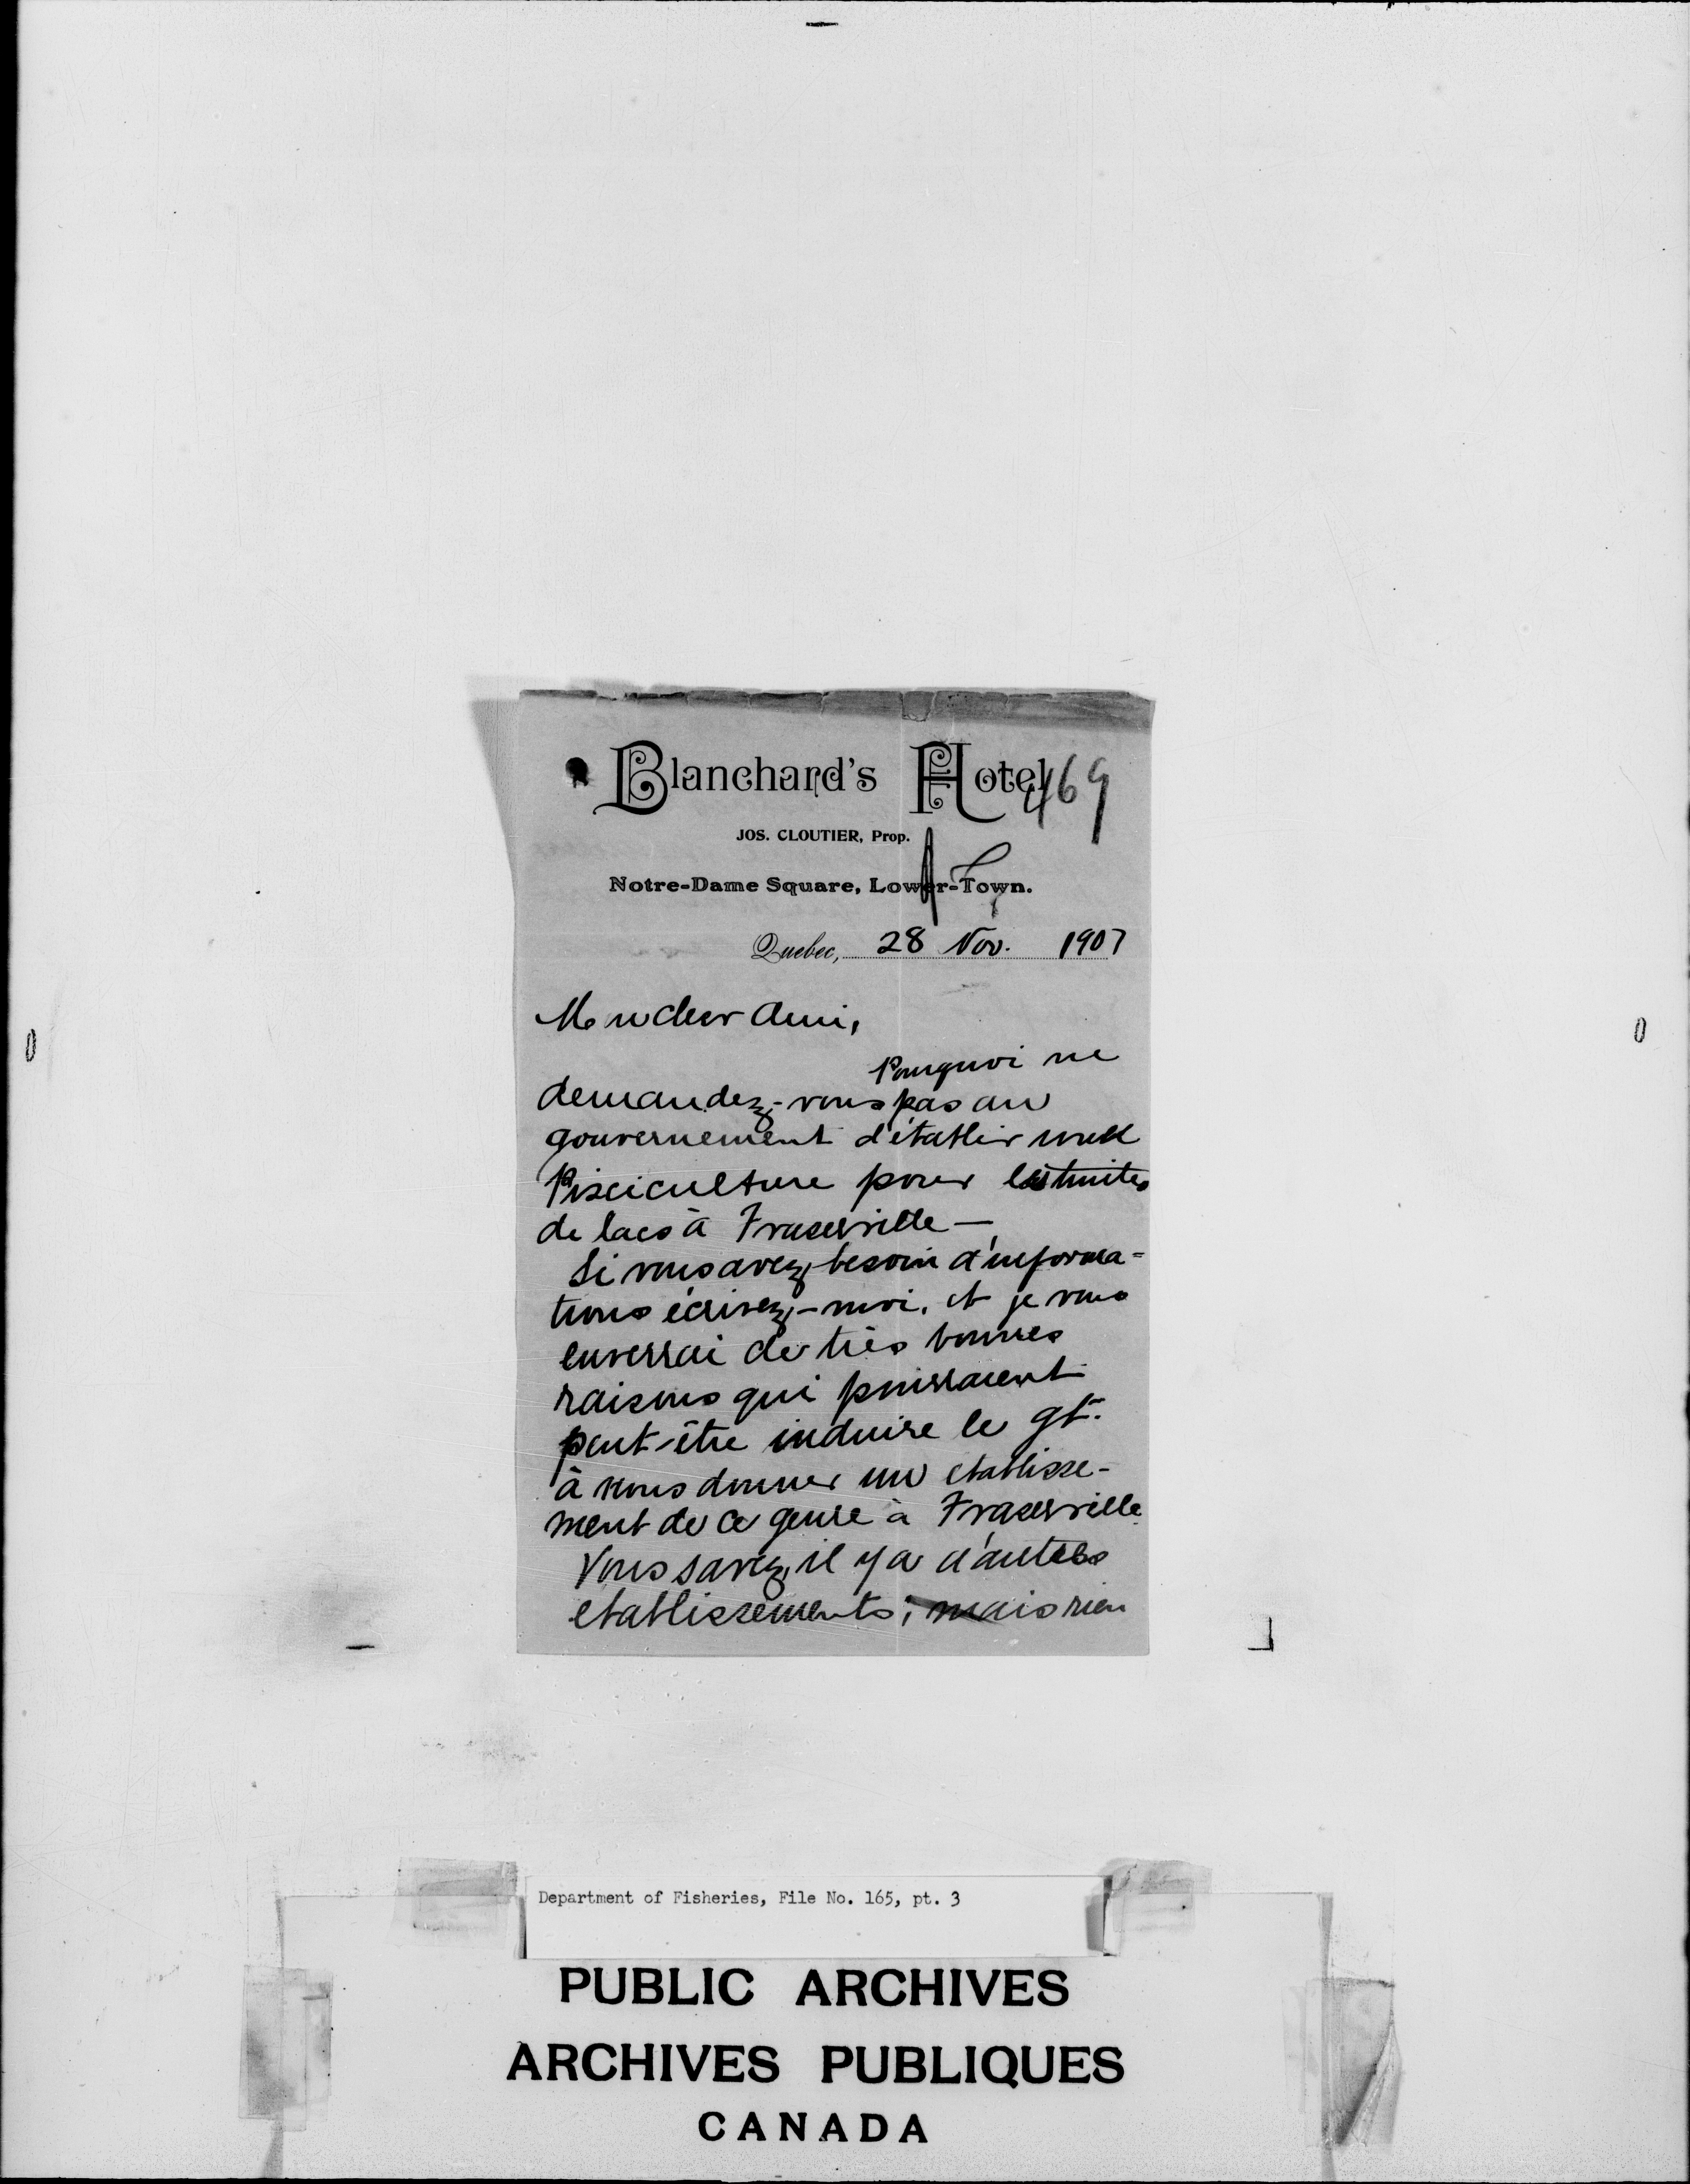 Blanchard's Hotel
469
JOS. CLOUTIER, Prop.
Notre-Dame Square, Lower-Town.
Quebec, 28 Nov. 1907
Mon cher Ami,
Pourquoi ne
demandez-vous pas au
gouvernement d'établir une
Pisciculture pour les truites
de lacs à Fraserville —
Si vous avez besoin d'informa=
tions écrivez-moi, et je vous
enverrai de très bonnes
raisons qui pourraient
peut-être induire le gt.
à nous donner un etablisse-
ment de ce genre à Fraserville.
Vous savez, il y a d'autres
etablissements; mais rien
Department of Fisheries, File No. 165, pt. 3
PUBLIC ARCHIVES
ARCHIVES PUBLIQUES
CANADA